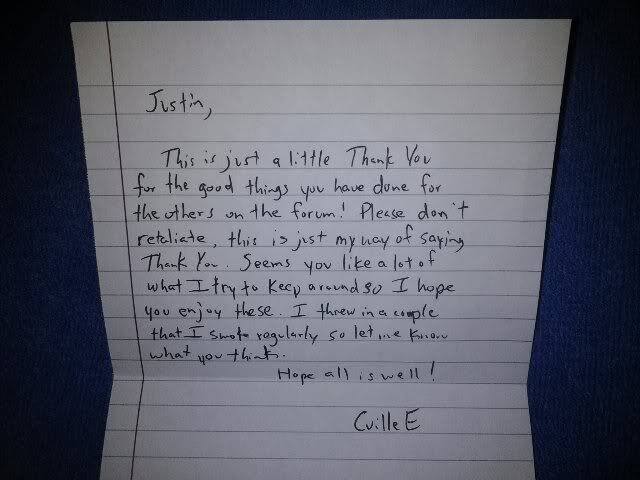 Justin,
This is just a little Thank You
for the good things you have done for
the others on the forum! Please don't
retaliate, this is just my way of saying
Thank You. Seems you like a lot of
what I try to keep around so I hope
you enjoy these. I threw in a couple
that I smoke regularly so let me know
what you think.
Hope all is well!
Cville E